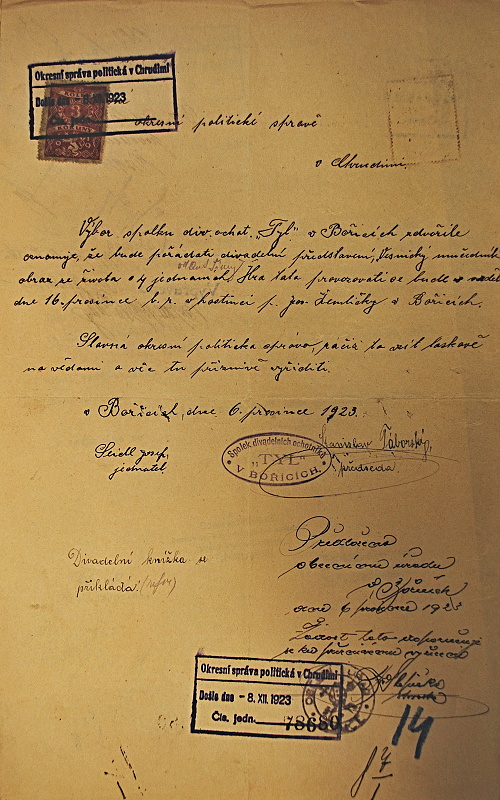 Okresní správa politická v Chrudimi
Došlo dne - 8. XII. 1923
Čís. jedn.
KOLEK
3
KORUNY
okresní politické správě
v Chrudimi.
Výbor spolku div. ochot. "Tyl" v Bořicích zdvořile
oznamuje, že bude pořádati divadelní představení, "Vesnický mučedník
obraz ze života o 4 jednáních. Hra tato provozovati se bude v neděli
dne 16. prosince b. r. v hostinci p. Jos. Zemličky v Bořicích.
Slavná okresní politická správo, račiž to vzít laskavě
na vědomí a vše tu příznivě vyříditi.
v Bořicích, dne 6. prosince 1923.
Seidl Josef,
jednatel.
Spolek divadelních ochotníků
"TYL"
V BOŘICÍCH.
Stanislav Táborský,
předseda.
Divadelní knížka se
přikládá.
Předloženo
obecnímu úřadu
v Bořicích
dne 6 prosince 1923
Žádost tato doporučuje
se ku příznivému vyřízení
Okresní správa politická v Chrudimi
Došlo dne - 8. XII. 1923
Čís. jedn. 78680
14